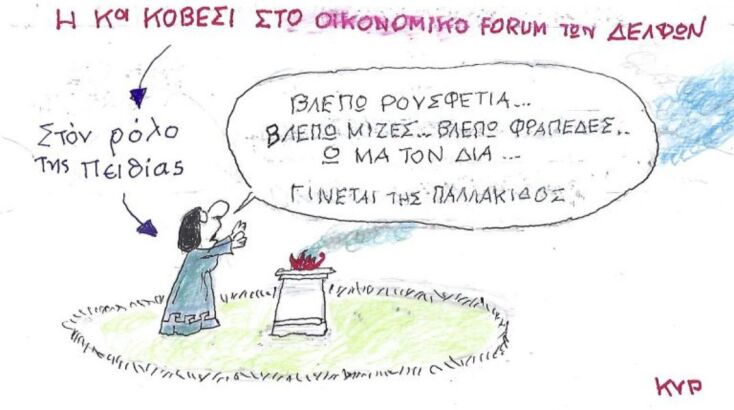 Η Και ΚΟΒΕΣΙ ΣΤΟ ΟΙΚΟΝΟΜΙΚΟ FORUM ΤΩΝ ΔΕΛΦΩΝ
Στόν ρόλο
της Πειθίας
ΒΛΕΠΩ ΡΟΥΣΦΕΤΙΑ...
ΒΛΕΠΩ ΜΙΖΕΣ... ΒΛΕΠΩ ΦΡΑΠΕΔΕΣ..
Ω ΜΑ ΤΟΝ ΔΙΑ...
ΓΙΝΕΤΑΙ ΤΗΣ ΠΑΛΛΑΚΙΔΟΣ
ΚΥΡ